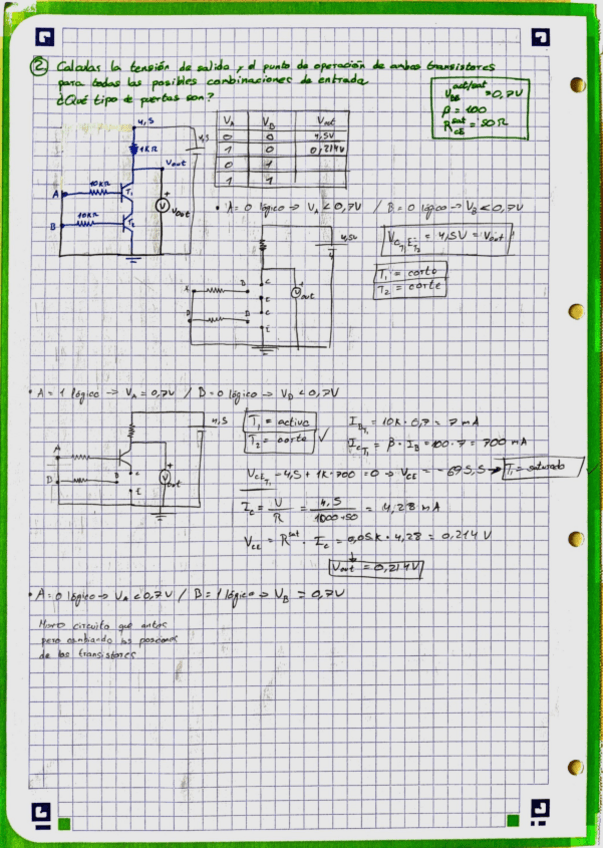 2 Calcular la tensión de salida y el punto de operación de ambos transistores
para todas las posibles combinaciones de entrada.
¿Qué tipo de puertas son?
V_BE^act/sat = 0,7V
β = 100
R_CE^sat = 50Ω
4,5
1KΩ
4,5
Vout
A 10KΩ T₁
B 10KΩ T₂
V Vout
V_A V_B Vout
0 0 4,5V
1 0 0,214V
0 1
1 1
• A=0 lógico → V_A < 0,7V / B=0 lógico → V_B < 0,7V
4,5V
A B C
E
B B C
E
V out
= 4,5V = Vout
T₁ = corte
T₂ = corte
• A=1 lógico → V_A = 0,7V / B=0 lógico → V_B < 0,7V
4,5
A
B B C
E
V out
T₁ = activa
T₂ = corte ✓
I_BT₁ = 10K · 0,7 = 7 mA
I_CT₁ = β · I_B = 100 · 7 = 700 mA
V_CET₁ - 4,5 + 1K · 700 = 0 → V_CE = -695,5 → T₁ = saturado
I_C = V/R = 4,5/1000+50 = 4,28 mA
V_CE = R^sat · I_C = 0,05K · 4,28 = 0,214V
Vout = 0,214V
• A=0 lógico → V_A < 0,7V / B=1 lógico → V_B = 0,7V
Mismo circuito que antes
pero cambiando las posiciones
de los transistores